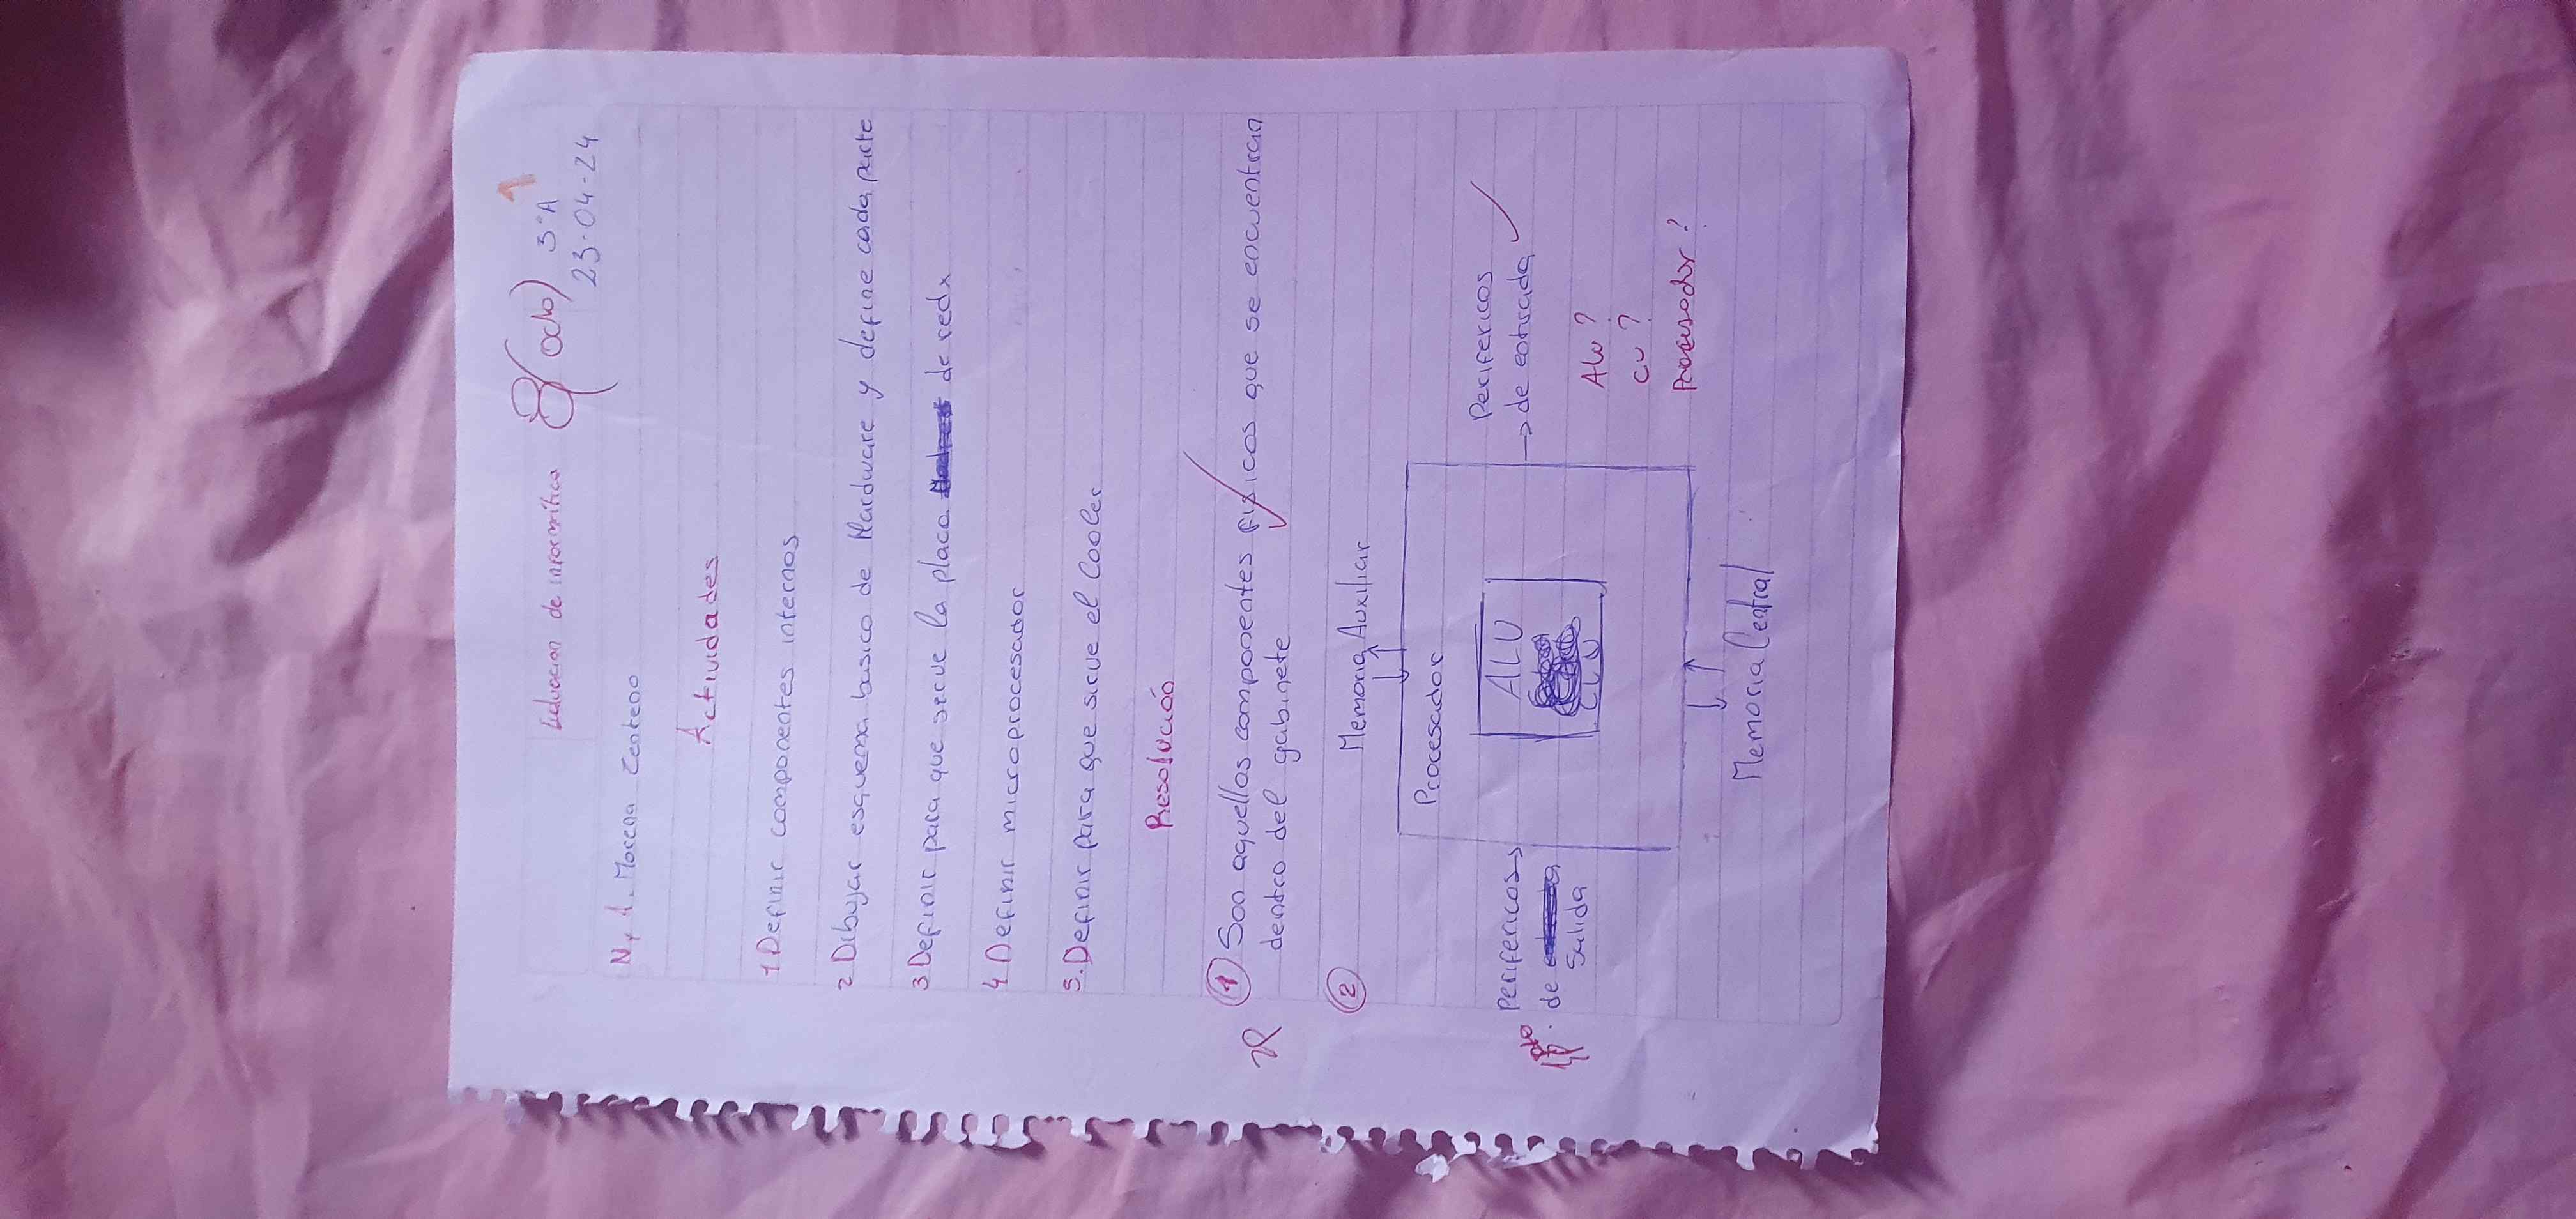 Evaluacion de informática 8 (ocho) 3°A
23-04-24
N y A. Morena Centeno
Actividades
1 Definir componentes internos
2 Dibujar esquema basico de Hardware y define cada parte
3 Definir para que serve la placa de redx
4. Definir microprocesador
5. Definir para que sirve el Cooler
Resolución
1 Son aquellos componentes fisicos que se encuentran
dentro del gabinete
2
Memoria Auxiliar
Procesador
Perifericos
de
Salida
ALU
Perifericos
de entrada
Alu?
cu?
Procesador?
Memoria Central